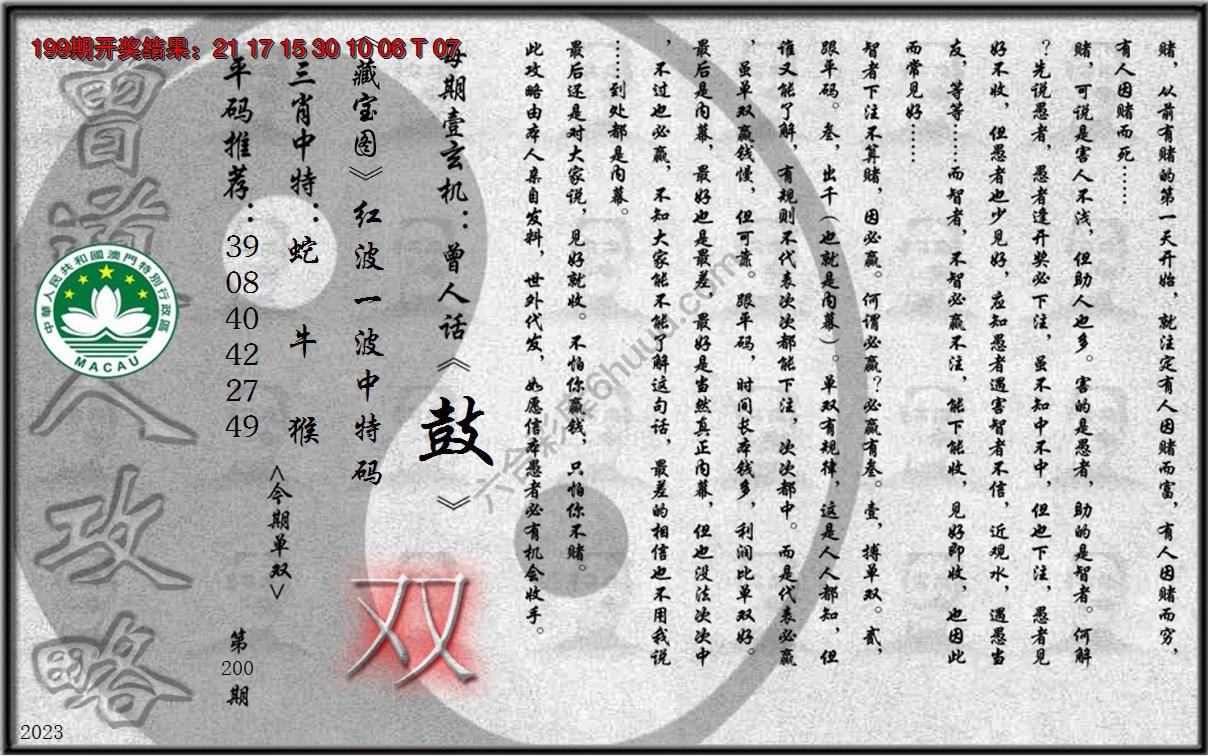 199期开奖结果：21 17 15 30 10 06 T 07
赌，从前有赌的第一天开始，就注定有人因赌而富，有人因赌而穷，
有人因赌而死……
赌，可说是害人不浅，但助人也多。害的是愚者，助的是智者。何解
？先说愚者，愚者逢开奖必下注，虽不知中不中，但也下注，愚者见
好不收，但愚者也少见好，应知愚者遇害智者不信，近观水，遇愚当
友，等等……而智者，不智必赢不注，能下能收，见好即收，也因此
而常见好……
智者下注不算赌，因必赢。何谓必赢？必赢有叁。壹，搏单双。贰，
跟平码。叁，出千（也就是内幕）。单双有规律，这是人人都知，但
谁又能了解，有规则不代表次次都能下注，次次都中。而是代表必赢
，虽单双赢钱慢，但可靠。跟平码，时间长本钱多，利润比单双好。
最后是内幕，最好也是最差，最好是当然真正内幕，但也没法次次中
，不过也必赢，不知大家能不能了解这句话，最差的相信也不用我说
……到处都是内幕。
最后还是对大家说，见好就收。不怕你赢钱，只怕你不赌。
此攻略由本人亲自发料，世外代发，如愿信本愚者必有机会收手。
每期壹玄机：曾人话《鼓》
《藏宝图》红波一波中特码
双
三肖中特：蛇 牛 猴
<今期单双>
平码推荐：39 08 40 42 27 49
第200期
曾道人攻略
中華人民共和國澳門特別行政區
MACAU
六合彩库6huuu.com
2023